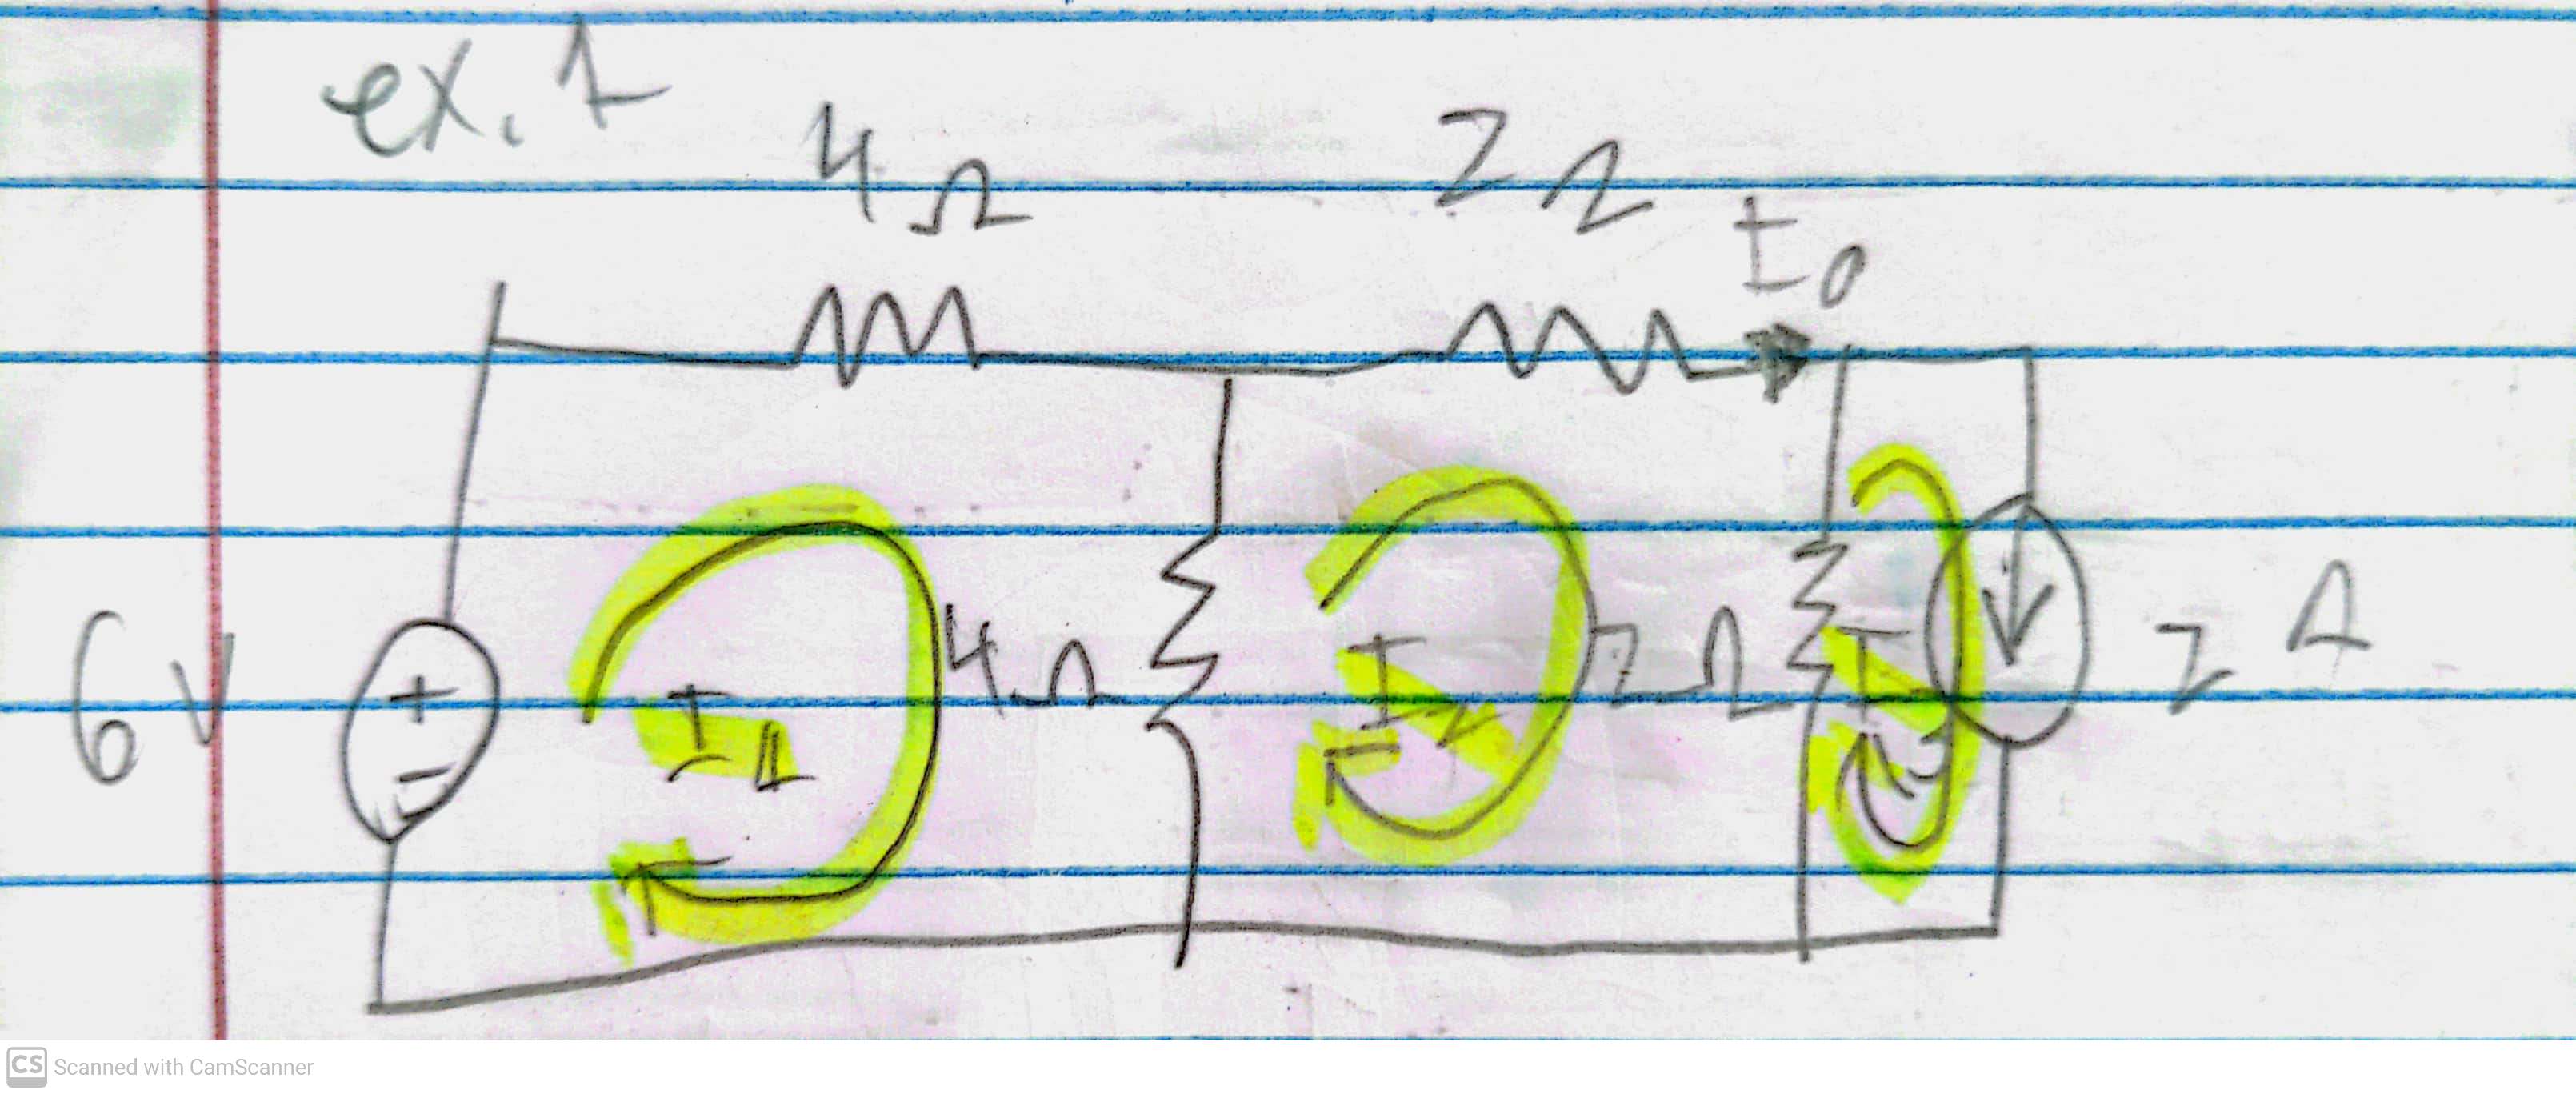 ex. 1
4Ω
2Ω
I0
6V
+
-
I1
4Ω
I2
2Ω
I3
2 A
CS Scanned with CamScanner